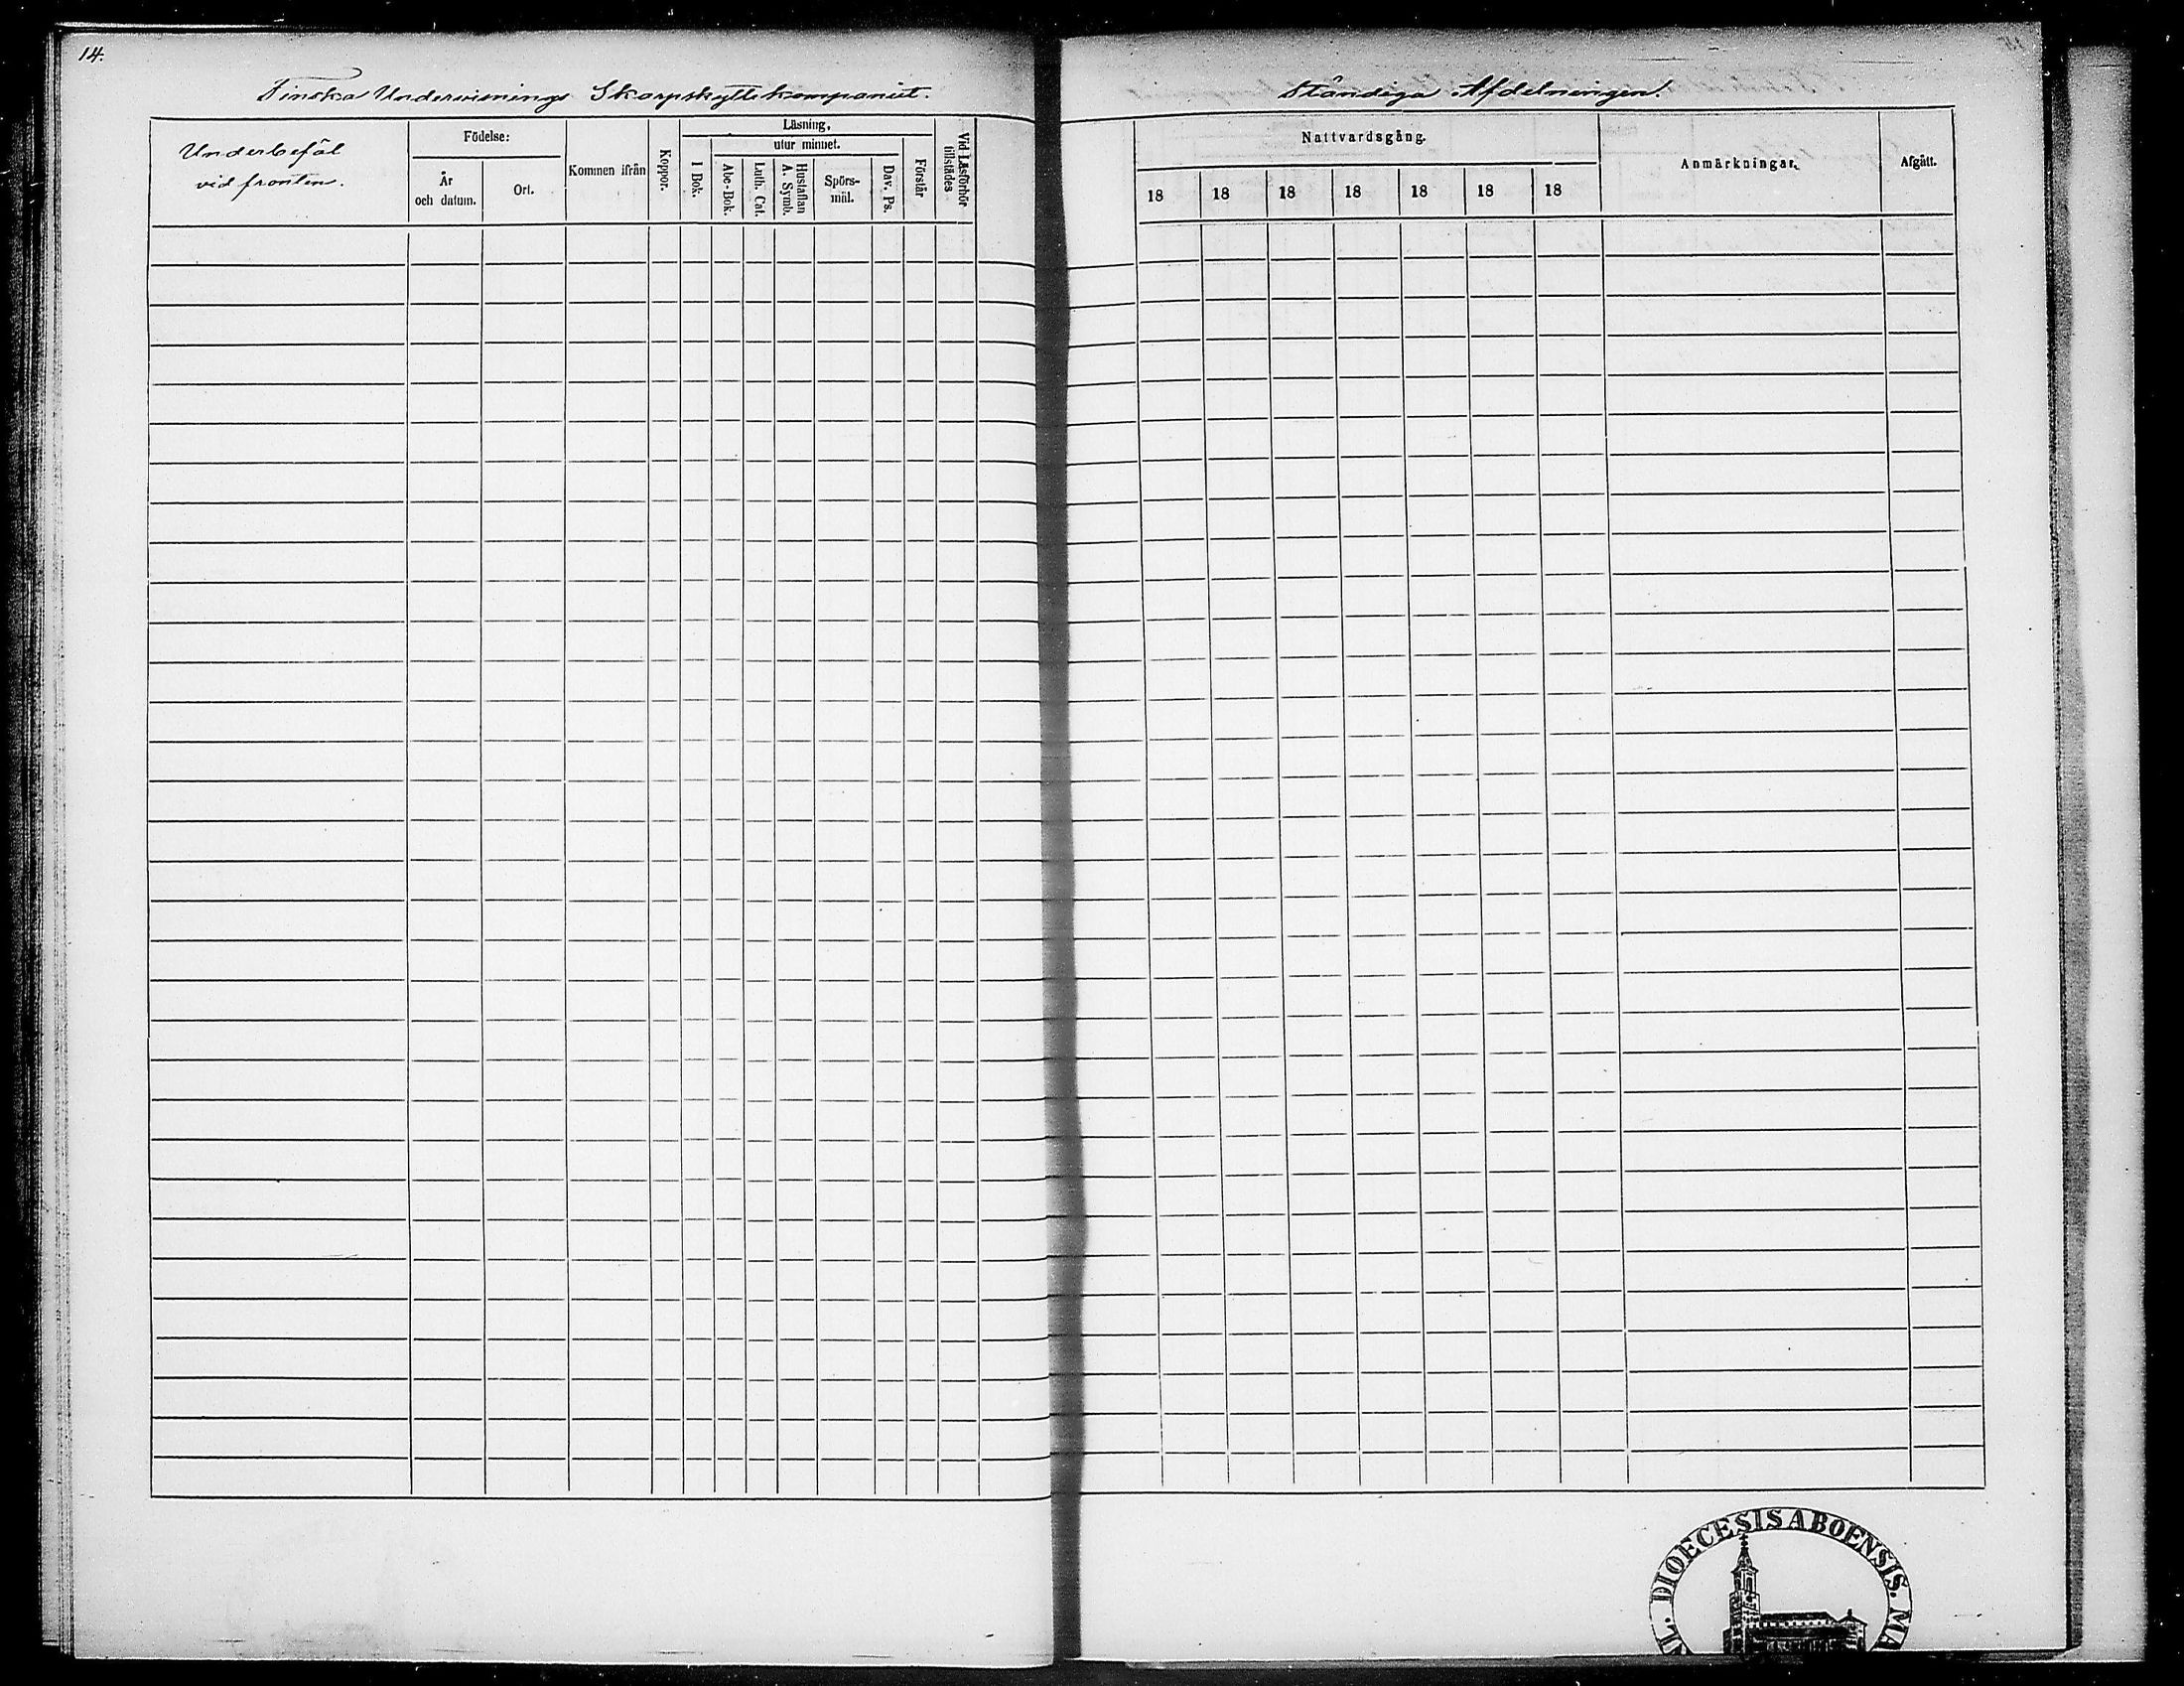 14.
Finska Undervisnings Skarpskyttekompaniet.
Underbefäl
vid fronten.
Födelse:
År
och datum.
Ort.
Kommen ifrån
Koppor.
Läsning,
utur minnet.
I Bok.
Abc-Bok.
Luth. Cat.
Hustaflan
A. Symb.
Spörs-
mål.
Dav. Ps.
Förstår
Vid Läsförhör
tillstädes
Ständiga Afdelningen.
Nattvardsgång.
18 18 18 18 18 18 18
Anmärkningar.
Afgått.
DIOECESIS ABOENSIS. MA